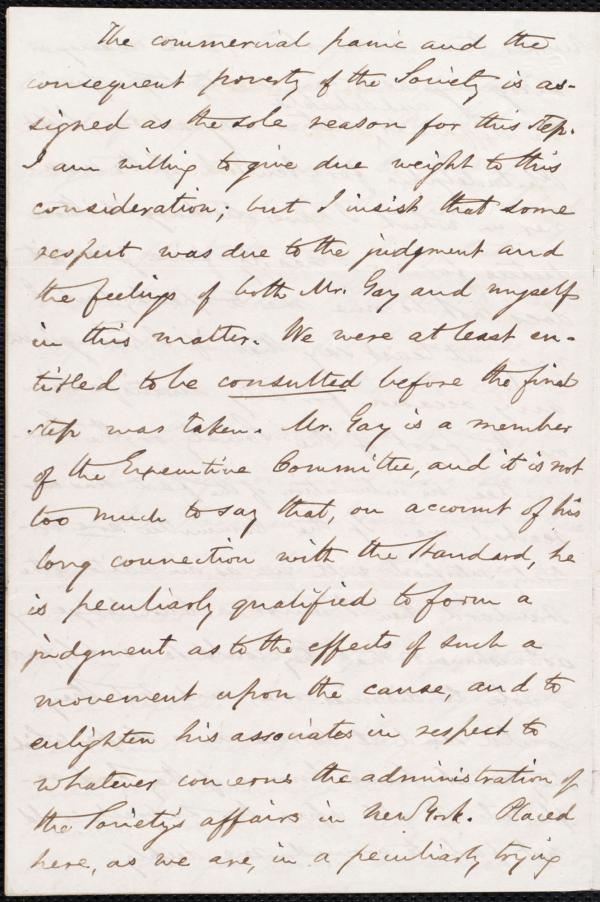 The commercial panic and the
consequent poverty of the Society is as-
signed as the sole reason for this step.
I am willing to give due weight to this
consideration; but I insist that some
respect was due to the judgment and
the feelings of both Mr. Gay and myself
in this matter. We were at least en-
titled to be consulted before the final
step was taken. Mr. Gay is a member
of the Executive Committee, and it is not
too much to say that, on account of his
long connection with the Standard, he
is peculiarly qualified to form a
judgment as to the effects of such a
movement upon the cause, and to
enlighten his associates in respect to
whatever concerns the administration of
the Society's affairs in New York. Placed
here, as we are, in a peculiarly trying